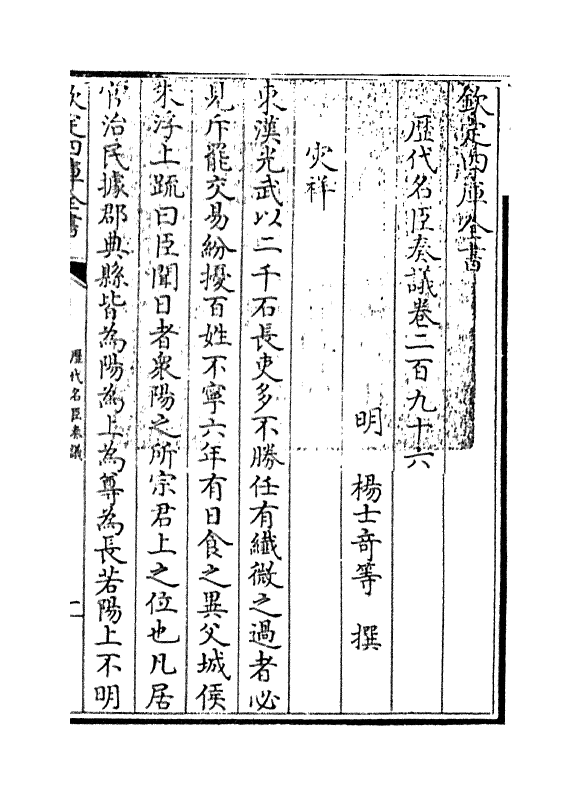 欽定四庫全書
歷代名臣奏議卷二百九十六
明 楊士奇等 撰
灾祥
東漢光武以二千石長吏多不勝任有纎微之過者必
見斥罷交易紛擾百姓不寧六年有日食之異父城侯
朱浮上疏曰臣聞日者衆陽之所宗君上之位也凡居
官治民據郡典縣皆為陽為上為尊為長若陽上不明
欽定四庫全書
歷代名臣奏議